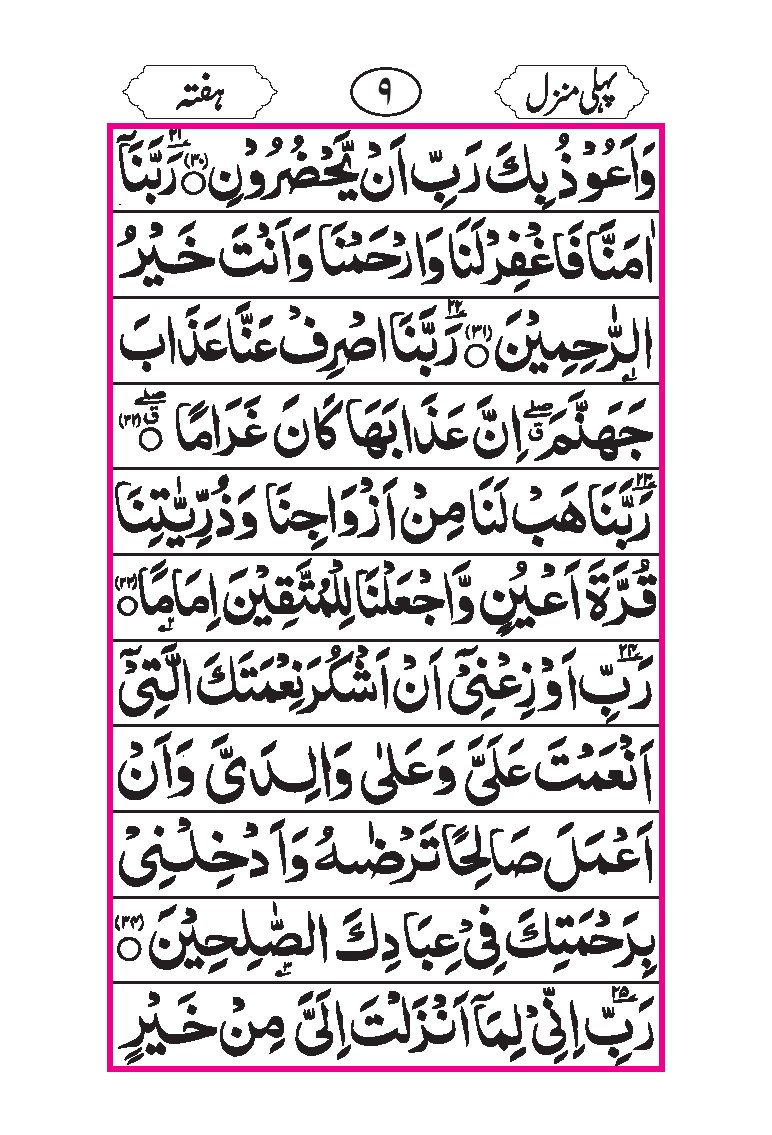 پہلی منزل ۹ ہفتہ
وَاَعُوْذُ بِكَ رَبِّ اَنْ يَّحْضُرُوْنِ ○ (۳۰) ۲۱ رَبَّنَآ
اٰمَنَّا فَاغْفِرْ لَنَا وَارْحَمْنَا وَاَنْتَ خَيْرُ
الرّٰحِمِيْنَ ○ (۳۱) ۲۲ رَبَّنَا اصْرِفْ عَنَّا عَذَابَ
جَهَنَّمَ ۖق اِنَّ عَذَابَهَا كَانَ غَرَامًا ۖق ○ (۳۲)
۲۳ رَبَّنَا هَبْ لَنَا مِنْ اَزْوَاجِنَا وَذُرِّيّٰتِنَا
قُرَّةَ اَعْيُنٍ وَّاجْعَلْنَا لِلْمُتَّقِيْنَ اِمَامًا ○ (۳۳)
۲۴ رَبِّ اَوْزِعْنِىْٓ اَنْ اَشْكُرَ نِعْمَتَكَ الَّتِىْٓ
اَنْعَمْتَ عَلَىَّ وَعَلٰى وَالِدَىَّ وَاَنْ
اَعْمَلَ صَالِحًا تَرْضٰىهُ وَاَدْخِلْنِىْ
بِرَحْمَتِكَ فِىْ عِبَادِكَ الصّٰلِحِيْنَ ○ (۳۴)
۲۵ رَبِّ اِنِّىْ لِمَآ اَنْزَلْتَ اِلَىَّ مِنْ خَيْرٍ